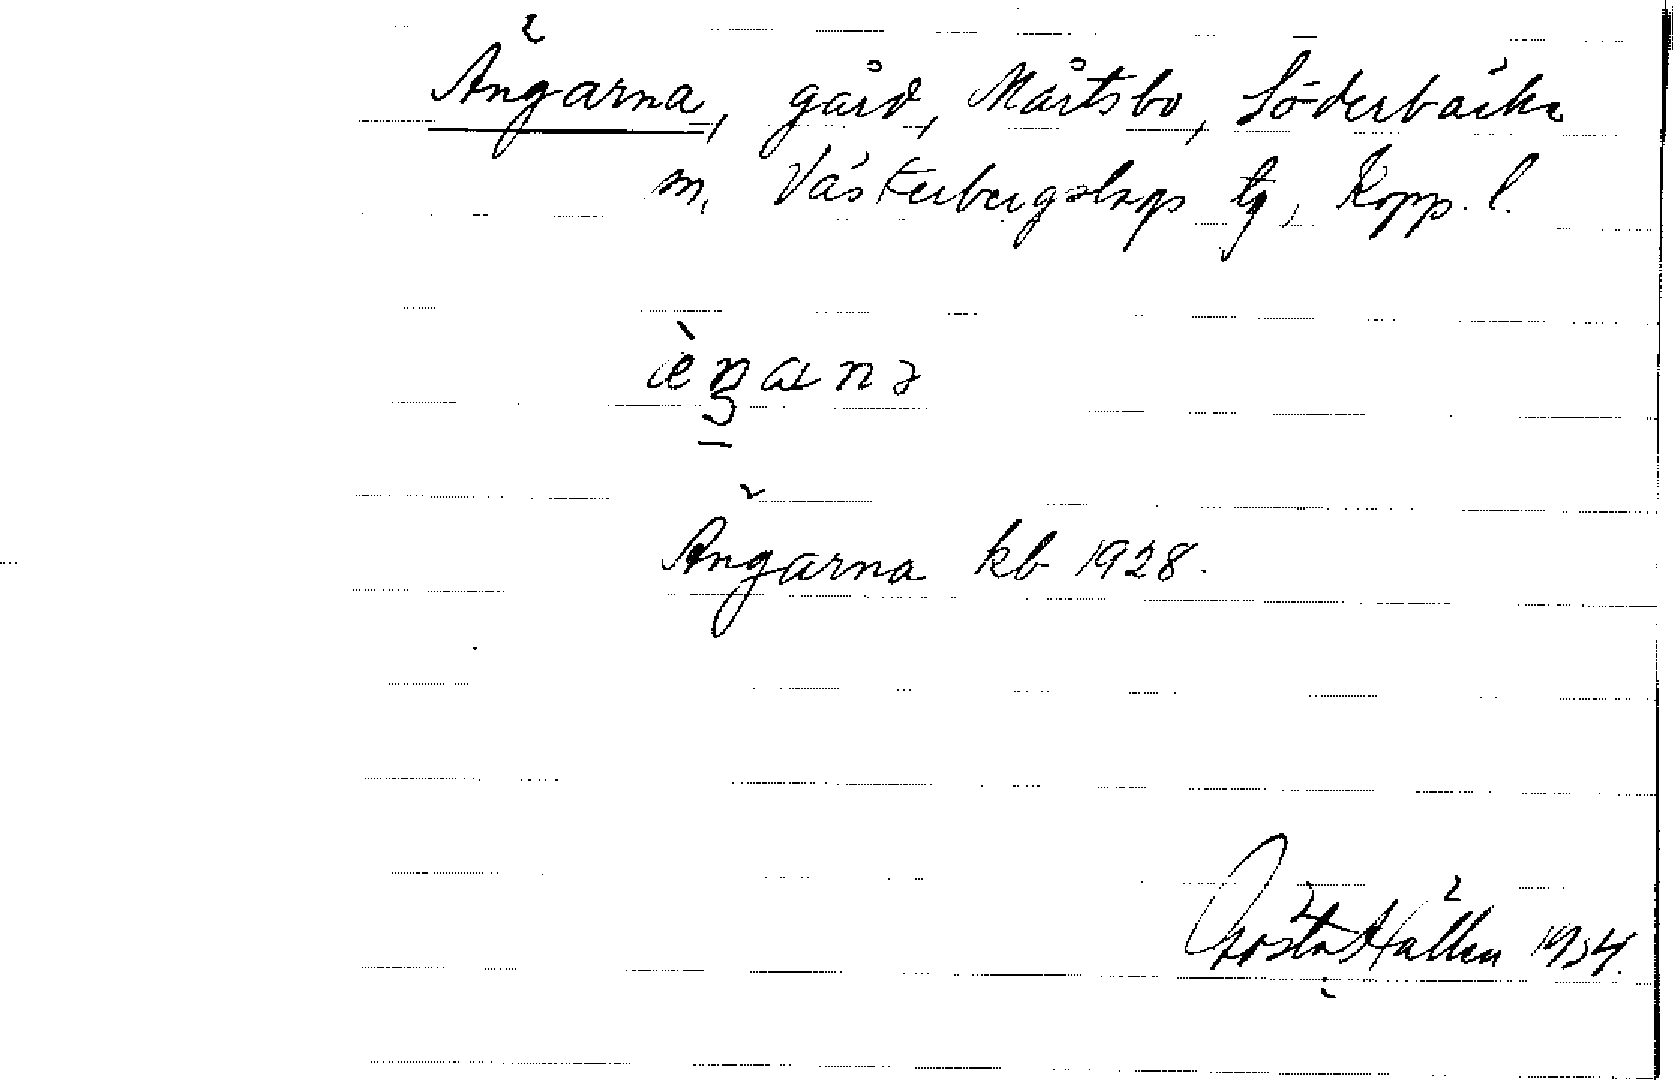 Ängarna, gård, Mårtsbo, Söderbärke
m, Västerbergslags tg, Kopp. l.
Ängarna kb 1928.
Gösta Hällen 1934.